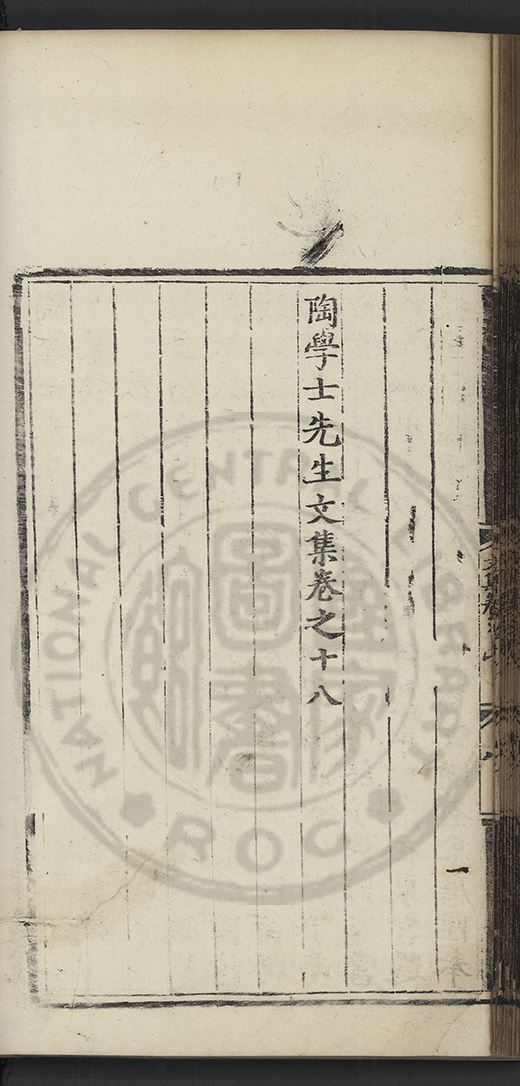 陶學士先生文集卷之十八
NATIONAL CENTRAL LIBRARY
國家圖書館
R.O.C